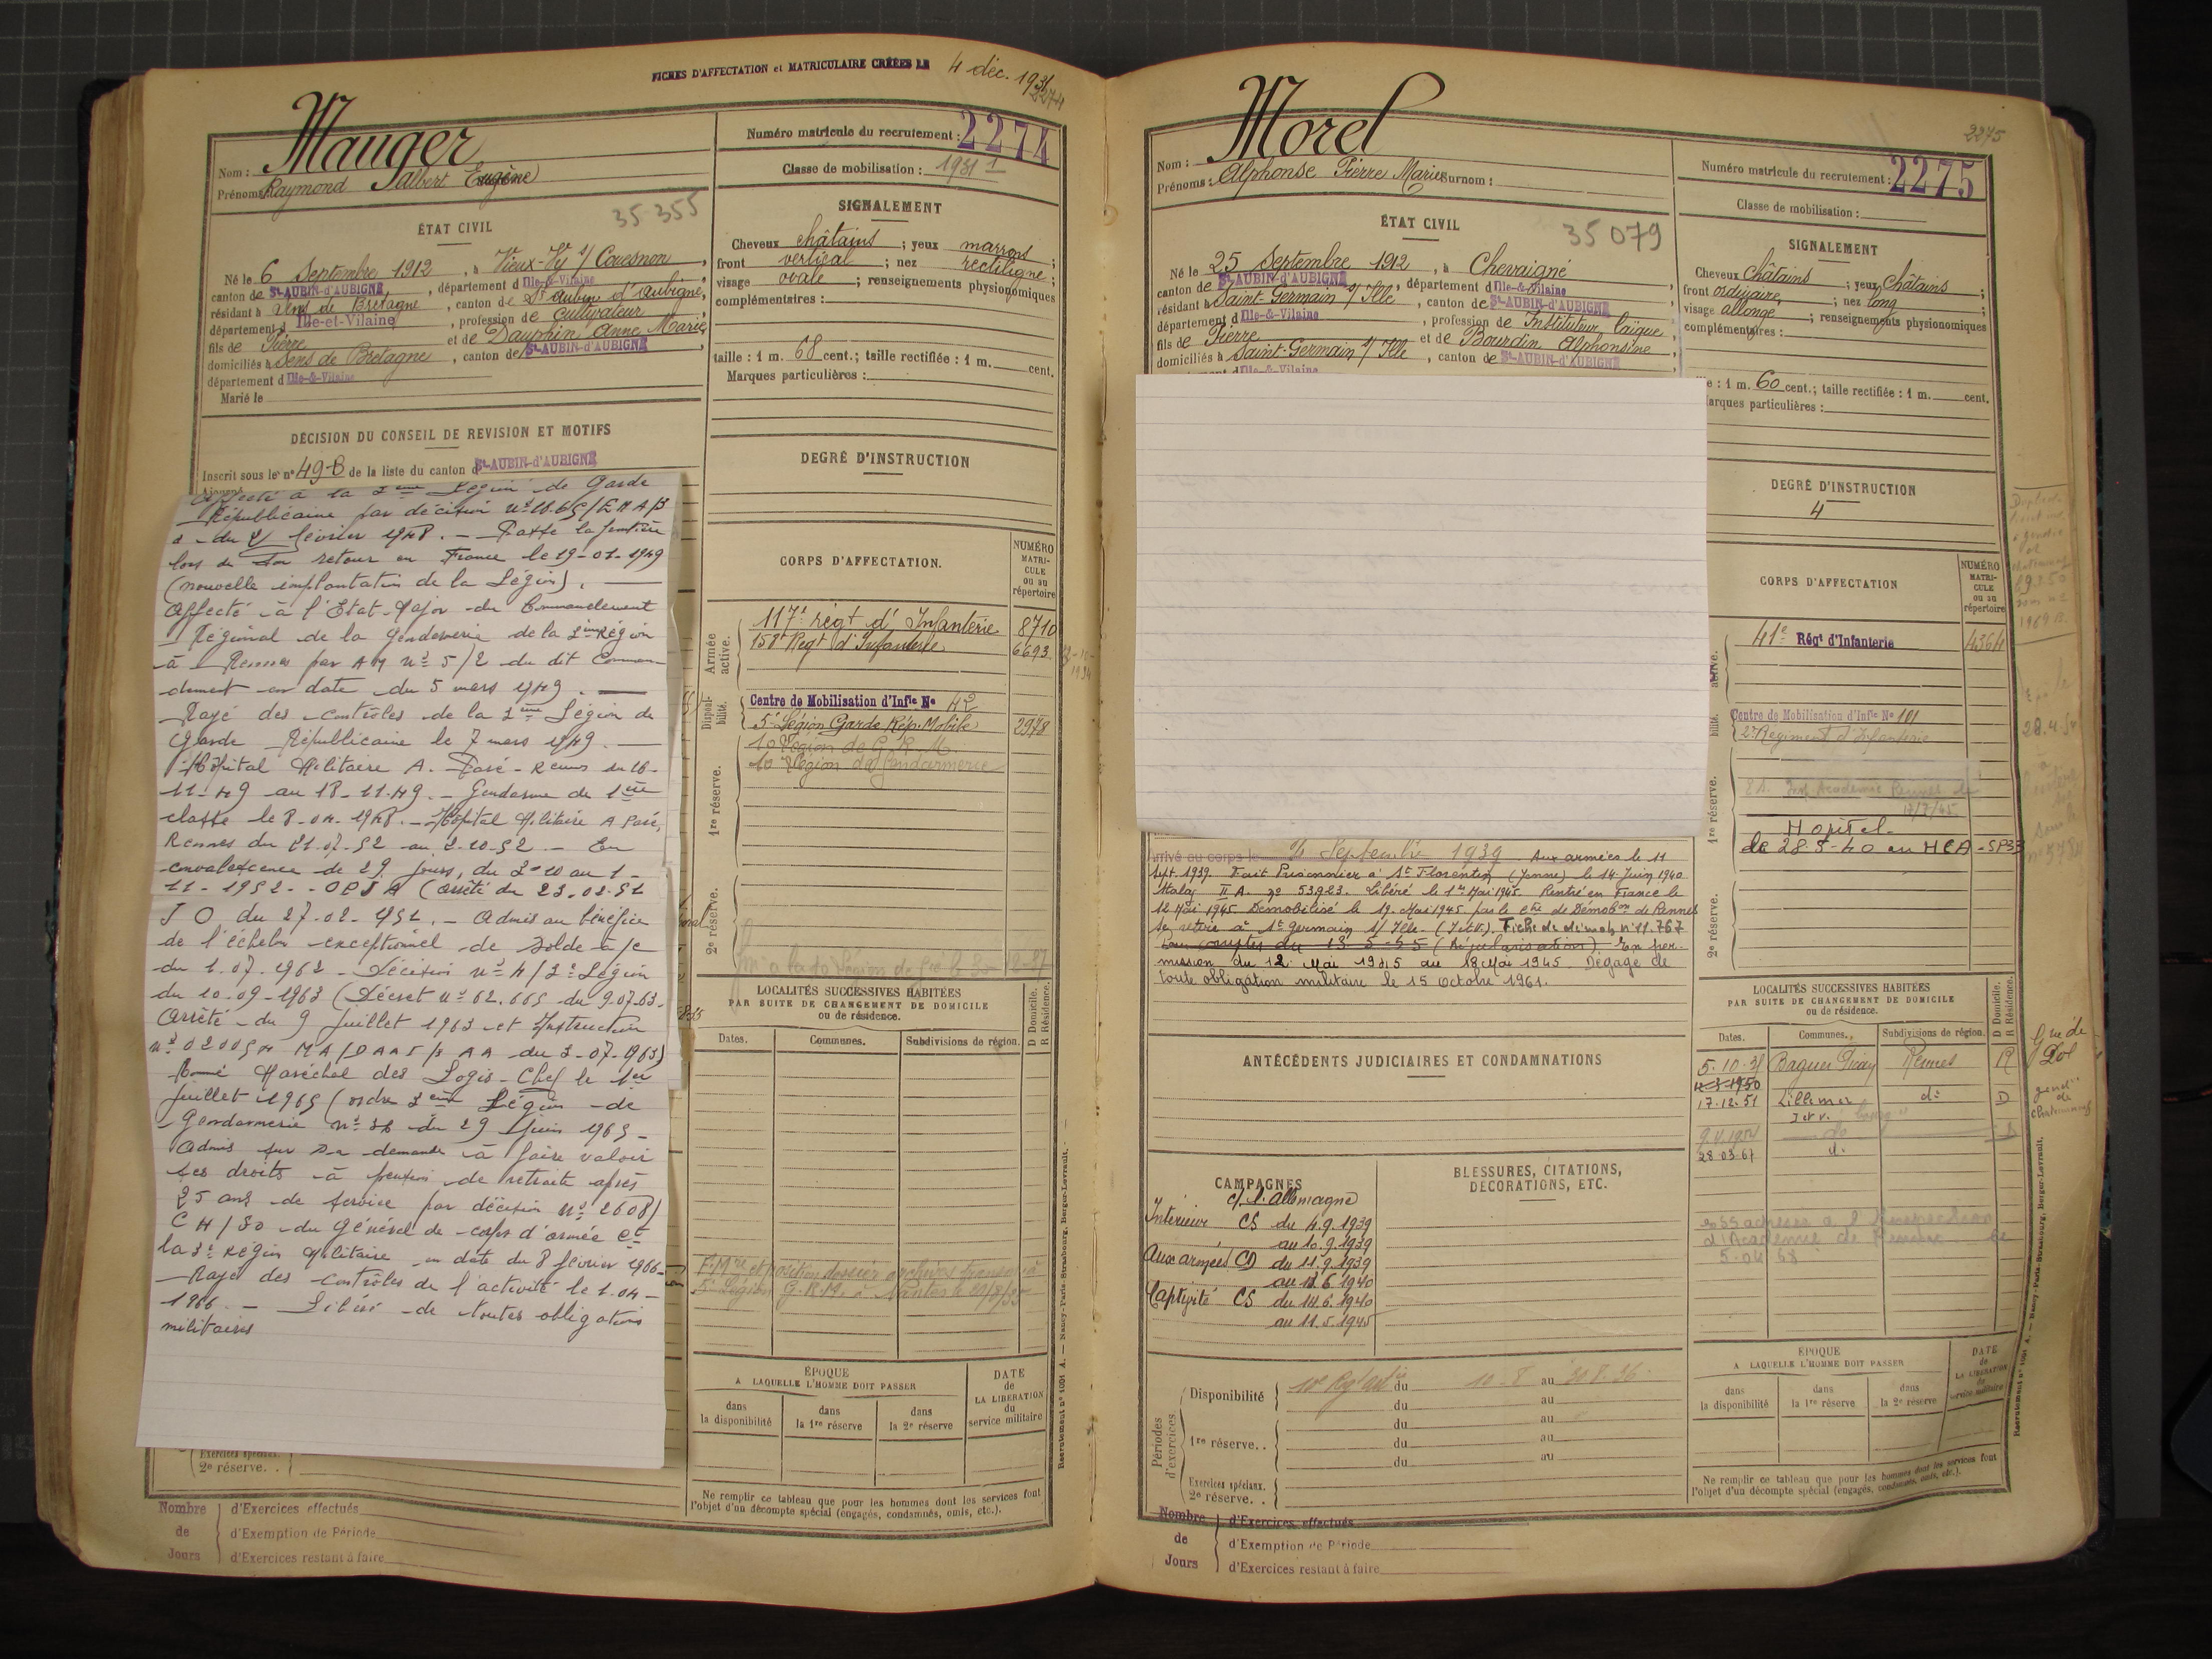 FICHES D'AFFECTATION et MATRICULAIRE CRÉÉES LE 4 déc. 1931
2274
Nom : Mauger
Prénoms : Raymond Albert Eugène
Numéro matricule du recrutement : 2274
Classe de mobilisation : 1931
ÉTAT CIVIL
35 355
Né le 6 Septembre 1912, à Vieux-Vy s/ Couesnon,
canton de St-AUBIN-d'AUBIGNÉ, département d Ille-&-Vilaine
résidant à Sens de Bretagne, canton de St Aubin d'Aubigné,
département d Ille-et-Vilaine, profession de Cultivateur
fils de Pierre et de Dauphin Anne Marie,
domiciliés à Sens de Bretagne, canton de St-AUBIN-d'AUBIGNÉ
département d Ille-&-Vilaine
Marié le
DÉCISION DU CONSEIL DE REVISION ET MOTIFS
Inscrit sous le n° 49-B de la liste du canton d St-AUBIN-d'AUBIGNÉ
Affecté à la 3ème Légion de Garde
Républicaine par décision
du février 1948. — Passe la frontière
lors de son retour en France le 19-01-1949
(nouvelle implantation de la Légion). —
Affecté à l'Etat-Major du Commandement
Régional de la Gendarmerie de la Région
à Rennes par n° 5/2 du dit Comman-
dement en date du 5 mars 1949. —
Rayé des contrôles de la 3ème Légion de
Garde Républicaine le 7 mars 1949. —
Hôpital Militaire A. Paré - Rennes du 16-
11-49 au 18-11-49. — Gendarme de 1ère
classe le 8-04-1948. — Hôpital Militaire A Paré,
Rennes du 21.07.52 au 2-10-52. — En
convalescence de 29 jours, du 3-10 au 1-
11-1952. - OPJA (arrêté du 23.02.52
JO du 27-02-1952. — Admis au bénéfice
de l'échelon exceptionnel de solde à/c
du 1.07.1962 - Décision n° 4/3e Légion
du 10-09-1963 (Décret n° 62.665 du 9.07.63-
Arrêté du 9 juillet 1963 et Instruction
du 3-07-1963)
Maréchal des Logis-Chef le 1er
juillet 1965 (ordre 3ème Légion de
Gendarmerie n° 36 du 29 Juin 1965 -
Admis sur sa demande à faire valoir
ses droits à pension de retraite après
25 ans de service par décision n° 2608/
CH/SO du Général de corps d'armée Ct
la 3e Région Militaire en date du 8 février 1966-
Rayé des contrôles de l'activité le 1.04-
1966. — Libéré de toutes obligations
militaires
2e réserve. .
Nombre de Jours
d'Exercices effectués
d'Exemption de Période
d'Exercices restant à faire
SIGNALEMENT
Cheveux châtains ; yeux marrons ;
front vertical ; nez rectiligne ;
visage ovale ; renseignements physionomiques
complémentaires :
taille : 1 m. 68 cent.; taille rectifiée : 1 m. cent.
Marques particulières :
DEGRÉ D'INSTRUCTION
CORPS D'AFFECTATION.
NUMÉRO MATRI-CULE ou au répertoire
Armée active.
117e régt d'Infanterie 8710
158e Régt d'Infanterie 6693
Disponi-bilité.
Centre de Mobilisation d'Infie No 42
5e Légion Garde Rép. Mobile 2978
10 Légion de G. R. M.
10 Légion de Gendarmerie
1re réserve.
2e réserve.
LOCALITÉS SUCCESSIVES HABITÉES
PAR SUITE DE CHANGEMENT DE DOMICILE
ou de résidence.
D Domicile. R Résidence.
Dates. Communes. Subdivisions de région.
5e Légion G.R.M. à Nantes
ÉPOQUE
A LAQUELLE L'HOMME DOIT PASSER
DATE de LA LIBÉRATION du service militaire
dans la disponibilité
dans la 1re réserve
dans la 2e réserve
Ne remplir ce tableau que pour les hommes dont les services font
l'objet d'un décompte spécial (engagés, condamnés, omis, etc.).
Recrutement n° 1001 A. — Nancy-Paris-Strasbourg, Berger-Levrault.
2275
Nom : Morel
Prénoms : Alphonse Pierre Marie Surnom :
Numéro matricule du recrutement : 2275
Classe de mobilisation :
ÉTAT CIVIL
35 079
Né le 25 Septembre 1912, à Chevaigné
canton de St-AUBIN-d'AUBIGNÉ, département d Ille-&-Vilaine
résidant à Saint-Germain s/ Ille, canton de St-AUBIN-d'AUBIGNÉ
département d Ille-&-Vilaine, profession de Instituteur laïque,
fils de Pierre et de Bourdin Alphonsine,
domiciliés à Saint-Germain s/ Ille, canton de St-AUBIN-d'AUBIGNÉ
Ille-&-Vilaine
Arrivé au corps le 4 Septembre 1939. Aux armées le 11
Sept. 1939. Fait Prisonnier à St Florentin (Yonne) le 14 Juin 1940
Stalag II A. n° 53923. Libéré le 1er Mai 1945. Rentré en France le
12 Mai 1945. Démobilisé le 19. Mai 1945 par le Ctre de Démobon de Rennes
Se retire à St Germain s/ Ille. (I et V.). Fiche de démob. n° 11.767
compter du 13-5-55 (Régularisation) En per-
mission du 12 Mai 1945 au 18 Mai 1945. Dégagé de
toute obligation militaire le 15 Octobre 1961.
ANTÉCÉDENTS JUDICIAIRES ET CONDAMNATIONS
CAMPAGNES
c/ l'Allemagne
Intérieur CS du 4.9.1939
au 10.9.1939
Aux armées CD du 11.9.1939
au 13.6.1940
Captivité CS du 14.6.1940
au 11.5.1945
BLESSURES, CITATIONS,
DÉCORATIONS, ETC.
Périodes d'exercices.
Disponibilité du 10-8 au 30.8.36.
du au
1re réserve. . du au
du au
du au
Exercices spéciaux.
2e réserve. .
Nombre de Jours
d'Exercices effectués
d'Exemption de Période
d'Exercices restant à faire
SIGNALEMENT
Cheveux châtains ; yeux châtains ;
front ordinaire ; nez long ;
visage allongé ; renseignements physionomiques
complémentaires :
: 1 m. 60 cent.; taille rectifiée : 1 m. cent.
arques particulières :
DEGRÉ D'INSTRUCTION
4
CORPS D'AFFECTATION
NUMÉRO MATRI-CULE ou au répertoire
41e Régt d'Infanterie 4364
Centre de Mobilisation d'Infie No 101
2e Régiment d'Infanterie
1re réserve.
Hopital
le 28-5-40 au HCA - SP33
2e réserve.
LOCALITÉS SUCCESSIVES HABITÉES
PAR SUITE DE CHANGEMENT DE DOMICILE
ou de résidence.
D Domicile. R Résidence.
Dates. Communes. Subdivisions de région.
5.10.31 Baguer Pican Rennes R
17.12.51 Lillemer do D
I et V.
28.03.67
5.04.68
ÉPOQUE
A LAQUELLE L'HOMME DOIT PASSER
DATE de LA LIBÉRATION du service militaire
dans la disponibilité
dans la 1re réserve
dans la 2e réserve
Ne remplir ce tableau que pour les hommes dont les services font
l'objet d'un décompte spécial (engagés, condamnés, omis, etc.).
Recrutement n° 1001 A. — Nancy-Paris-Strasbourg, Berger-Levrault.